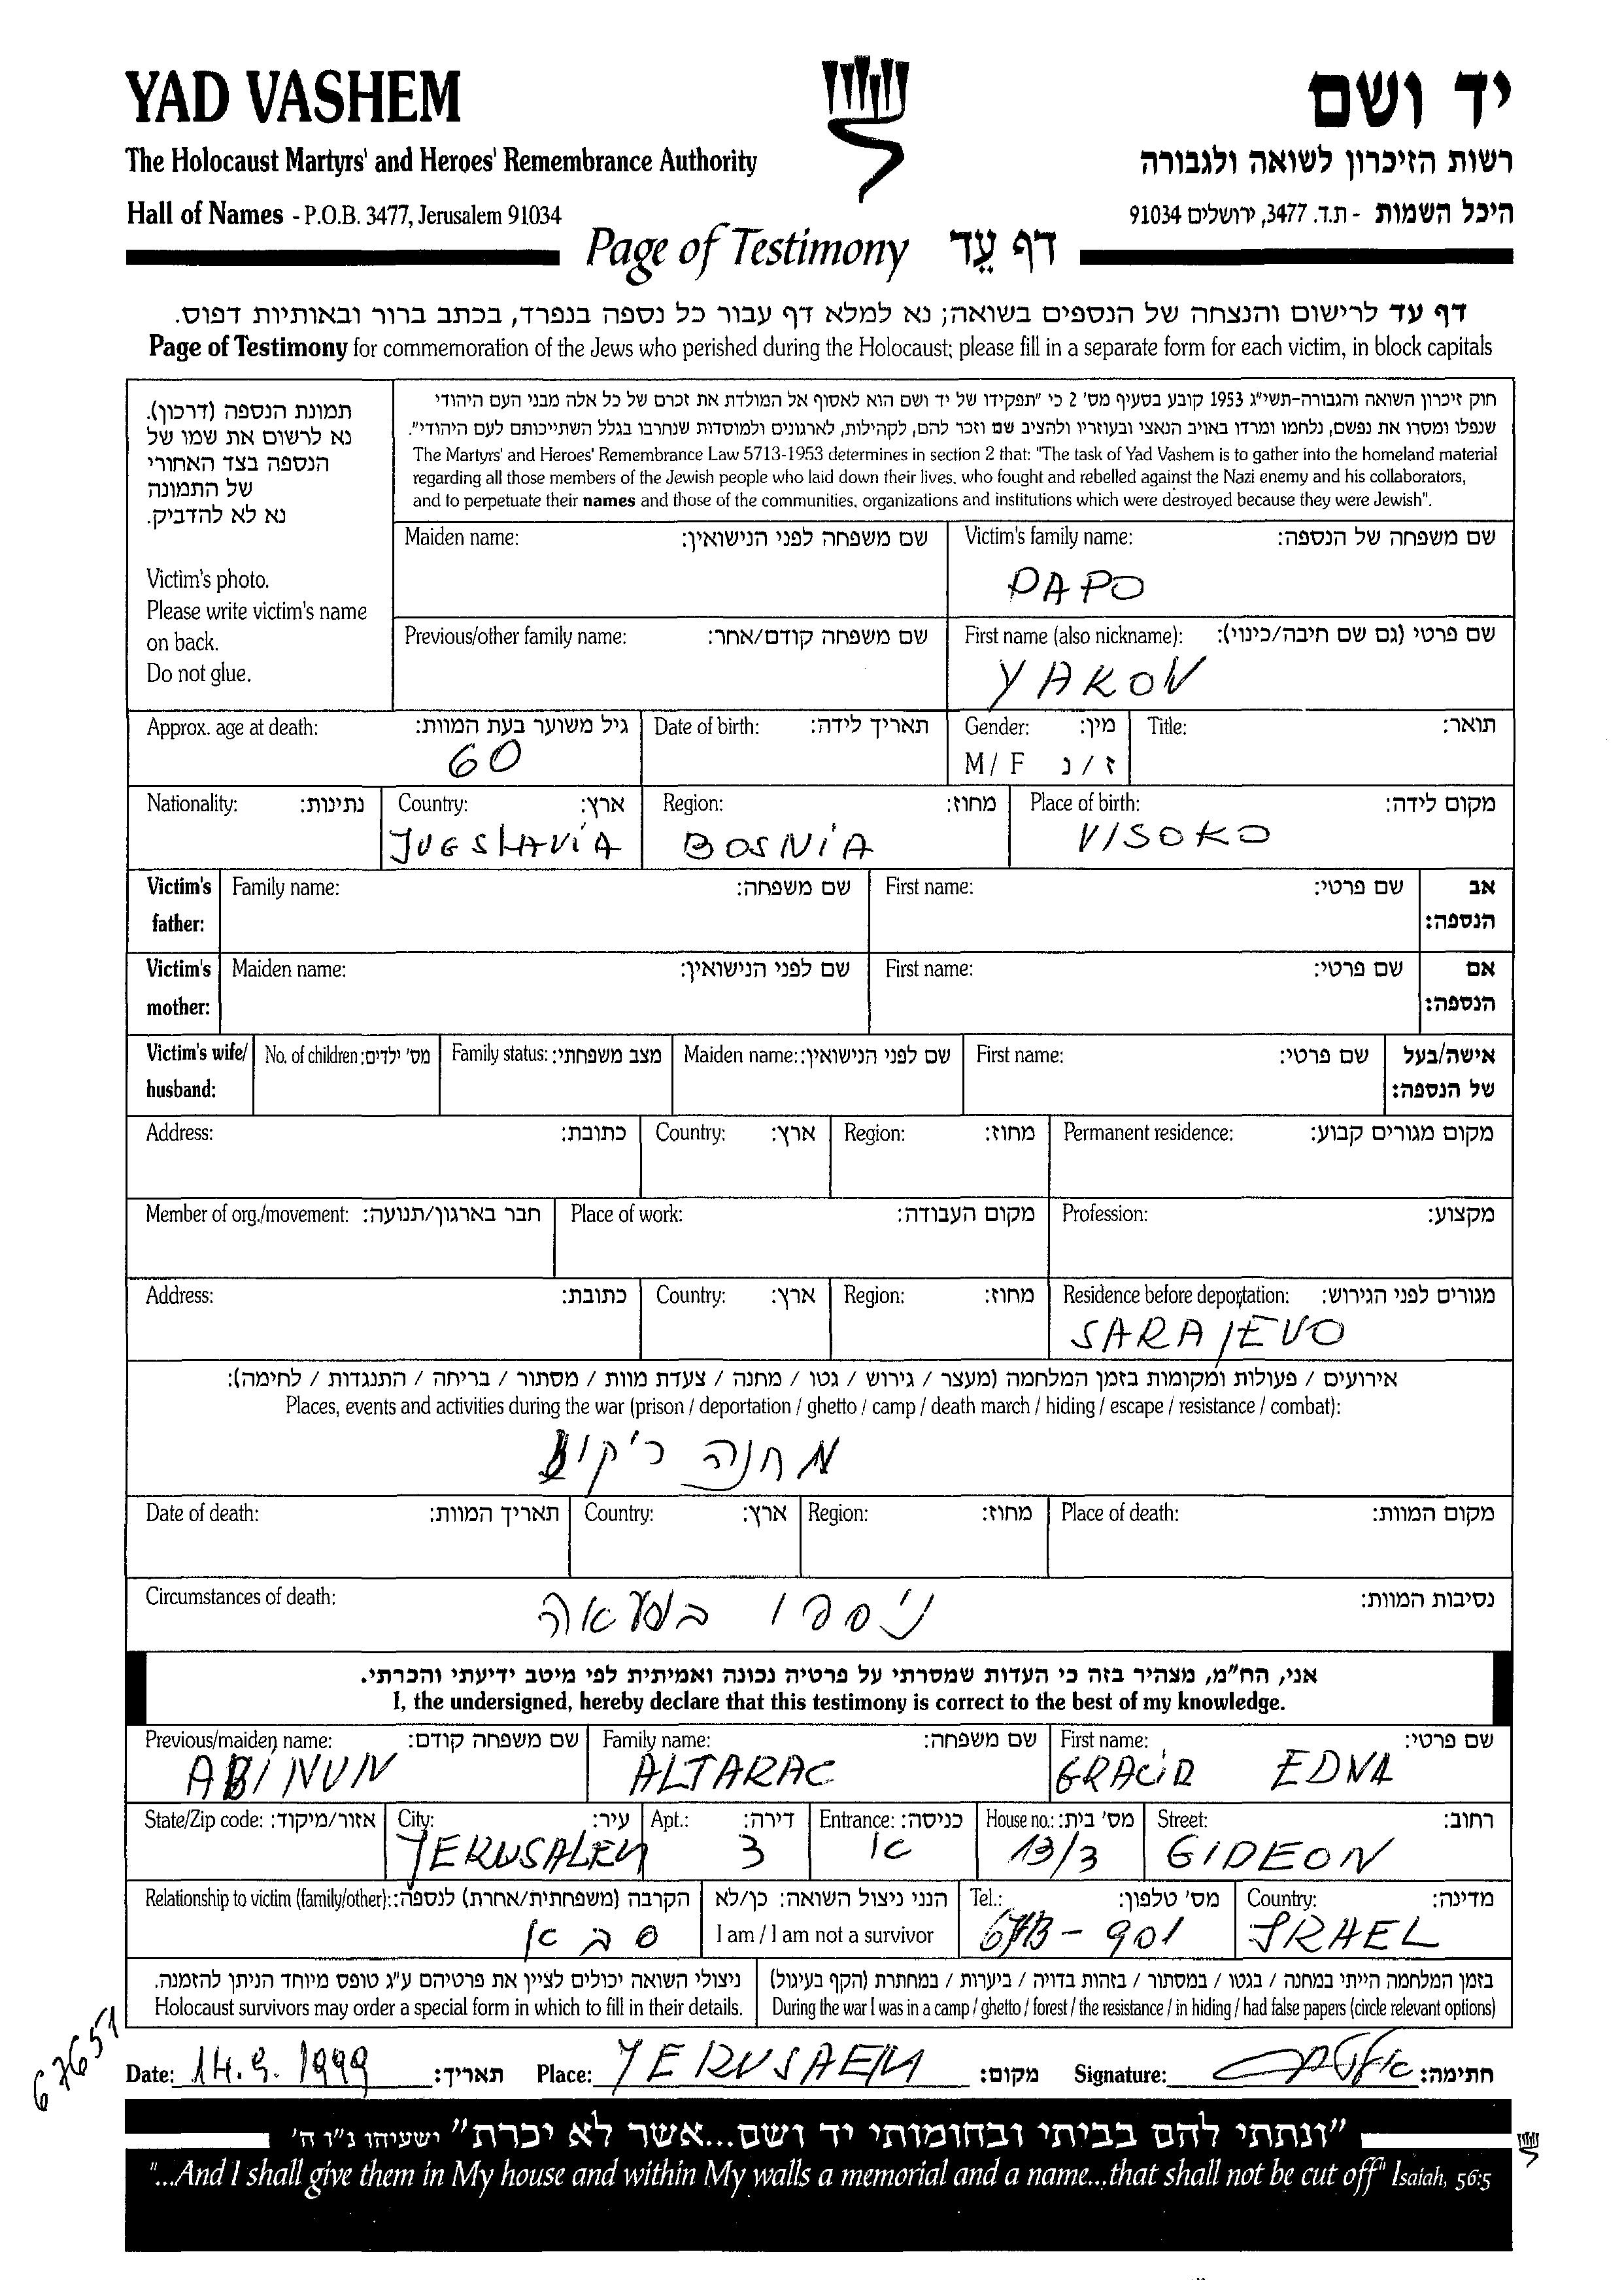 YAD VASHEM
יד ושם
The Holocaust Martyrs' and Heroes' Remembrance Authority
רשות הזיכרון לשואה ולגבורה
Hall of Names - P.O.B. 3477, Jerusalem 91034
היכל השמות - ת.ד. 3477, ירושלים 91034
Page of Testimony דף עֵד
דף עד לרישום והנצחה של הנספים בשואה; נא למלא דף עבור כל נספה בנפרד, בכתב ברור ובאותיות דפוס.
Page of Testimony for commemoration of the Jews who perished during the Holocaust; please fill in a separate form for each victim, in block capitals
תמונת הנספה (דרכון).
נא לרשום את שמו של
הנספה בצד האחורי
של התמונה
נא לא להדביק.
Victim's photo.
Please write victim's name
on back.
Do not glue.
חוק זיכרון השואה והגבורה-תשי"ג 1953 קובע בסעיף מס' 2 כי "תפקידו של יד ושם הוא לאסוף אל המולדת את זכרם של כל אלה מבני העם היהודי
שנפלו ומסרו את נפשם, נלחמו ומרדו באויב הנאצי ובעוזריו ולהציב שם וזכר להם, לקהילות, לארגונים ולמוסדות שנחרבו בגלל השתייכותם לעם היהודי".
The Martyrs' and Heroes' Remembrance Law 5713-1953 determines in section 2 that: "The task of Yad Vashem is to gather into the homeland material
regarding all those members of the Jewish people who laid down their lives, who fought and rebelled against the Nazi enemy and his collaborators,
and to perpetuate their names and those of the communities, organizations and institutions which were destroyed because they were Jewish".
Maiden name: שם משפחה לפני הנישואין:
Victim's family name: שם משפחה של הנספה:
PAPO
Previous/other family name: שם משפחה קודם/אחר:
First name (also nickname): שם פרטי (גם שם חיבה/כינוי):
YAKOV
Approx. age at death: גיל משוער בעת המוות:
60
Date of birth: תאריך לידה:
Gender: מין:
M / F ז / נ
Title: תואר:
Nationality: נתינות:
Country: ארץ:
JUGSLAViA
Region: מחוז:
BOSNiA
Place of birth: מקום לידה:
VISOKO
Victim's father:
Family name: שם משפחה:
First name: שם פרטי:
אב הנספה:
Victim's mother:
Maiden name: שם לפני הנישואין:
First name: שם פרטי:
אם הנספה:
Victim's wife/ husband:
No. of children: מס' ילדים:
Family status: מצב משפחתי:
Maiden name: שם לפני הנישואין:
First name: שם פרטי:
אישה/בעל של הנספה:
Address: כתובת:
Country: ארץ:
Region: מחוז:
Permanent residence: מקום מגורים קבוע:
Member of org./movement: חבר בארגון/תנועה:
Place of work: מקום העבודה:
Profession: מקצוע:
Address: כתובת:
Country: ארץ:
Region: מחוז:
Residence before deportation: מגורים לפני הגירוש:
SARAJEVO
אירועים / פעולות ומקומות בזמן המלחמה (מעצר / גירוש / גטו / מחנה / צעדת מוות / מסתור / בריחה / התנגדות / לחימה):
Places, events and activities during the war (prison / deportation / ghetto / camp / death march / hiding / escape / resistance / combat):
מחנה ריקוז
Date of death: תאריך המוות:
Country: ארץ:
Region: מחוז:
Place of death: מקום המוות:
Circumstances of death: נסיבות המוות:
ניספו בשואה
אני, הח"מ, מצהיר בזה כי העדות שמסרתי על פרטיה נכונה ואמיתית לפי מיטב ידיעתי והכרתי.
I, the undersigned, hereby declare that this testimony is correct to the best of my knowledge.
Previous/maiden name: שם משפחה קודם:
ABiNUN
Family name: שם משפחה:
ALTARAC
First name: שם פרטי:
GRACiA EDNA
State/Zip code: אזור/מיקוד:
City: עיר:
JERUSALEM
Apt.: דירה:
3
Entrance: כניסה:
א
House no.: מס' בית:
13/3
Street: רחוב:
GIDEON
Relationship to victim (family/other): הקרבה (משפחתית/אחרת) לנספה:
סבא
הנני ניצול השואה: כן/לא
I am / I am not a survivor
Tel.: מס' טלפון:
- 901
Country: מדינה:
ISRAEL
ניצולי השואה יכולים לציין את פרטיהם ע"ג טופס מיוחד הניתן להזמנה.
Holocaust survivors may order a special form in which to fill in their details.
בזמן המלחמה הייתי במחנה / בגטו / במסתור / בזהות בדויה / ביערות / במחתרת (הקף בעיגול)
During the war I was in a camp / ghetto / forest / the resistance / in hiding / had false papers (circle relevant options)
67651
Date: 14.9.1999 תאריך: Place: YERUSAEM מקום: Signature: חתימה:
"ונתתי להם בביתי ובחומותי יד ושם...אשר לא יכרת" ישעיהו נ"ו ה'
"...And I shall give them in My house and within My walls a memorial and a name...that shall not be cut off" Isaiah, 56:5